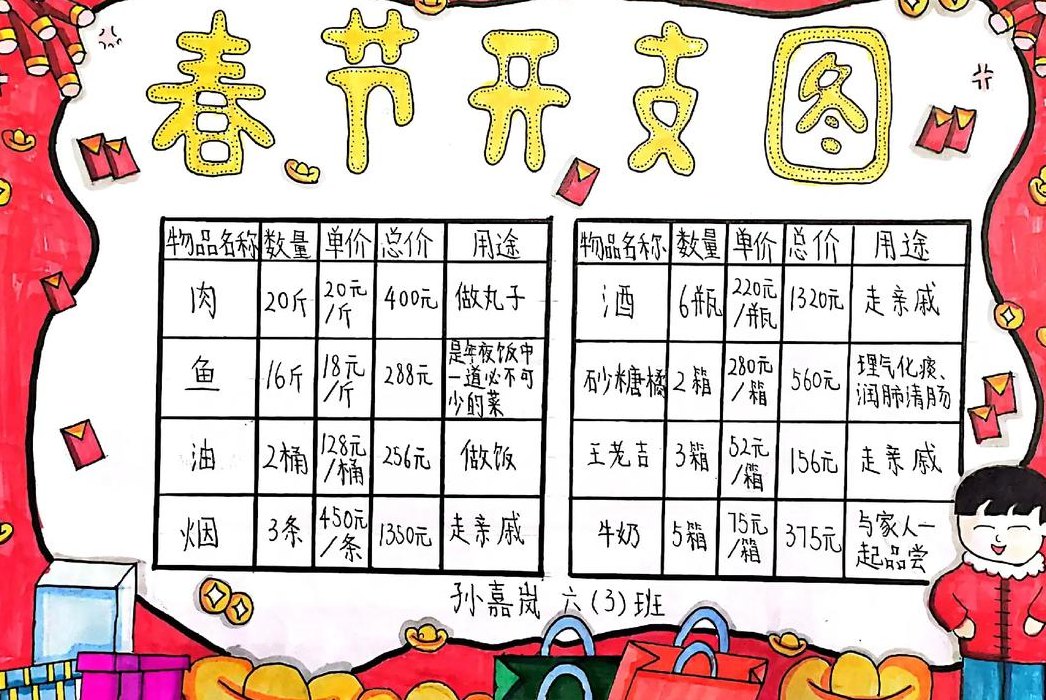 春节开支图
物品名称 数量 单价 总价 用途
肉 20斤 20元/斤 400元 做丸子
鱼 16斤 18元/斤 288元 是年夜饭中一道必不可少的菜
油 2桶 128元/桶 256元 做饭
烟 3条 450元/条 1350元 走亲戚
物品名称 数量 单价 总价 用途
酒 6瓶 220元/瓶 1320元 走亲戚
砂糖橘 2箱 280元/箱 560元 理气化痰、润肺清肠
王老吉 3箱 52元/箱 156元 走亲戚
牛奶 5箱 75元/箱 375元 与家人一起品尝
孙嘉岚 六(3)班